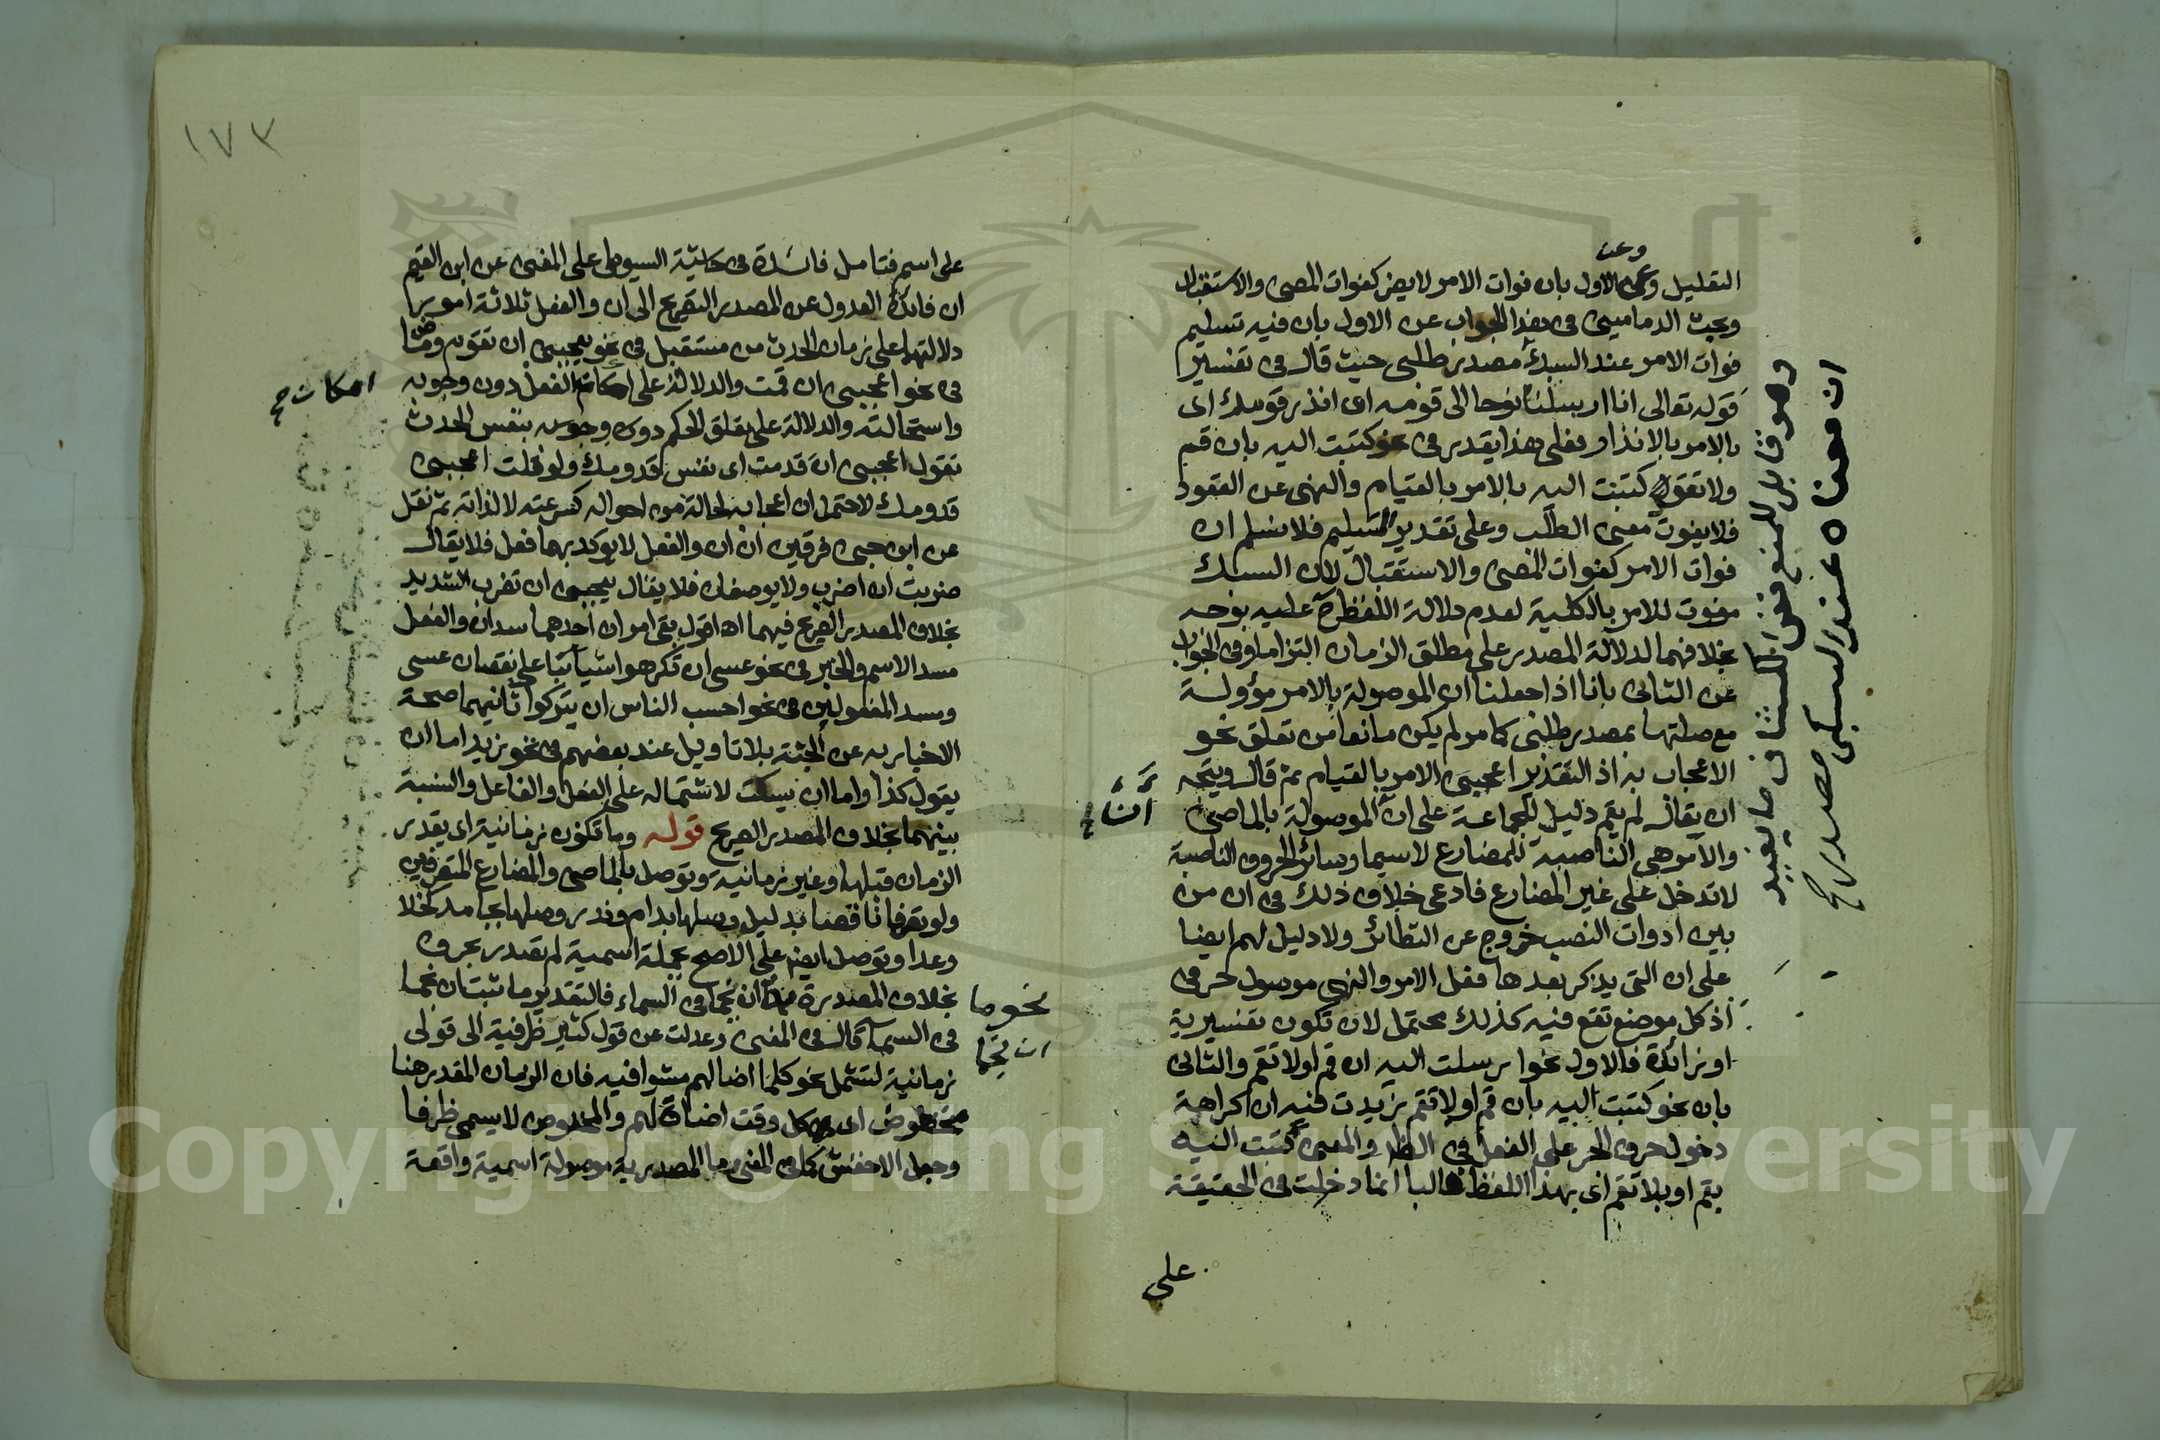 وعن
التقليل وعن الاول بان فوات الامر لا يضر كفوات المضى والاستقبال
وبحث الدمامينى فى هذا الجواب عن الاول بان فيه تسليم
فوات الامر عند السبك مصدر طلبى حيث قال فى تفسير
قوله تعالى انا ارسلنا نوحا الى قومه ان انذر قومك اى
بالامر بالانذار فعلى هذا يقدر فى نحو كتبت اليه بان قم
ولا تقعد كتبت اليه بالامر بالقيام والنهى عن القعود
فلا يفوت معنى الطلب وعلى تقدير التسليم فلا نسلم ان
فوات الامر كفوات المضى والاستقبال لان السبك
مفوت للامر بالكلية لعدم دلالة اللفظ ح عليه بوجه
بخلافهما لدلالة المصدر على مطلق الزمان التزاما وفى الجواب
عن الثانى بانا اذا جعلنا ان الموصولة بالامر مؤولة
مع صلتها بمصدر طلبى كما مر لم يكن مانعا من تعلق نحو
الاعجاب به اذ التقدير اعجبنى الامر بالقيام ثم قال ويتجه
ان يقال لم يقم دليل للجماعة على ان الموصولة بالماضى
والامر هى الناصبة للمضارع لا سيما وسائر الحروف الناصبة
لا تدخل على غير المضارع فادعى خلاف ذلك فى ان من
بين ادوات النصب خروج عن النظائر ولا دليل لهم ايضا
على ان التى يذكر بعدها فعل الامر والنهى موصول حرفى
اذ كل موضع تقع فيه كذلك محتمل لان تكون تفسيرية
او زائدة فالاول نحو ارسلت اليه ان قم او لا تقم والثانى
بان نحو كتبت اليه بان قم او لا تقم زيدت فيه ان كراهة
دخول حرف الجر على الفعل فى الظا والمعنى كتبت اليه
بقم او بلا تقم اى بهذا اللفظ فالبا انما دخلت فى الحقيقة
على
ان معناه عند السبكى مصدر ح
على اسم فتامل فائدة فى حاشية السيوطى على المغنى عن ابن القيم
ان فائدة العدول عن المصدر الصريح الى ان والفعل ثلاثة امور
دلالتها على زمان الحدث من مستقبل فى نحو يعجبنى ان تقوم وماض
فى نحو اعجبنى ان قمت والدلالة على امكان الفعل دون وجوبه
واستحالته والدلالة على تعلق الحكم دون وجوبه بنفس الحدث
تقول اعجبنى ان قدمت اى نفس قدومك ولو قلت اعجبنى
قدومك لاحتمل ان اعجابه لحالة من احواله كسرعته لا لذاته ثم نقل
عن ابن جنى فرقين ان ان والفعل لا يوكد بهما فعل فلا يقال
ضربت ان اضرب ولا يوصفان فلا يقال يعجبنى ان تضرب الشديد
بخلاف المصدر الصريح فيهما اه اقول بقى امران احدهما سد ان والفعل
مسد الاسم والخبر فى نحو عسى ان تكرهوا شيا بناء على نقصان عسى
وسد المفعولين فى نحو احسب الناس ان يتركوا ثانيهما صحة
الاخبار به عن الجثة بلا تاويل عند بعضهم فى نحو زيد اما ان
يقول كذا واما ان يسكت لاشتماله على الفعل والفاعل والنسبة
بينهما بخلاف المصدر الصريح قوله وما تكون زمانية اى يقدر
الزمان قبلها وغير زمانية وتوصل بالماضى والمضارع المتصرفين
ولو تصرفا ناقصا بدليل وصلها بدام وندر وصلها بجامد كخلا
وعدا وتوصل ايضا على الاصح بجملة اسمية لم تصدر بحرف
بخلاف المصدرة ان نجما فى السماء فالتقدير ما ثبت ان نجما
نحو ما
ان نجما
فى السماء قال فى المغنى وعدلت عن قول كثير ظرفية الى قولى
زمانية لتشمل نحو كلما اضا لهم مشوا فيه فان الزمان المقدر هنا
مخفوض اى كل وقت اضاة لهم والمخفوض لا يسمى ظرفا
وجعل الاخفش كما فى المغنى ما المصدرية موصولة اسمية واقعة
امكان ح
١٧٣
Copyright © King Saud University